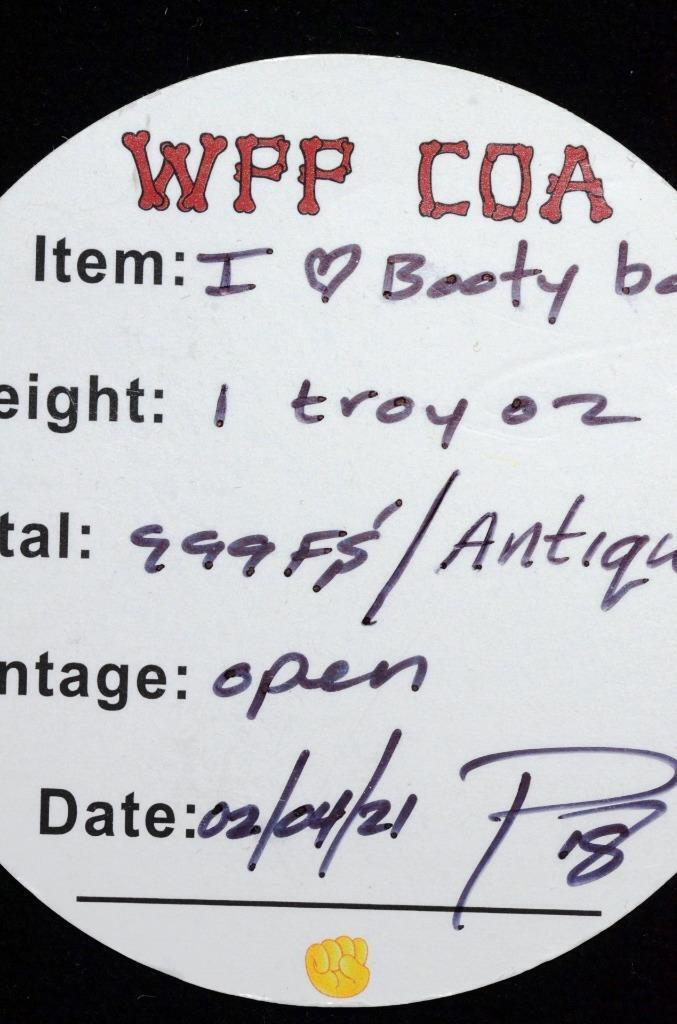 WPP COA
Item: I ♡ Booty ba
eight: 1 troy oz
tal: 999 FS / Antiqu
ntage: open
Date: 02/04/21 P 18